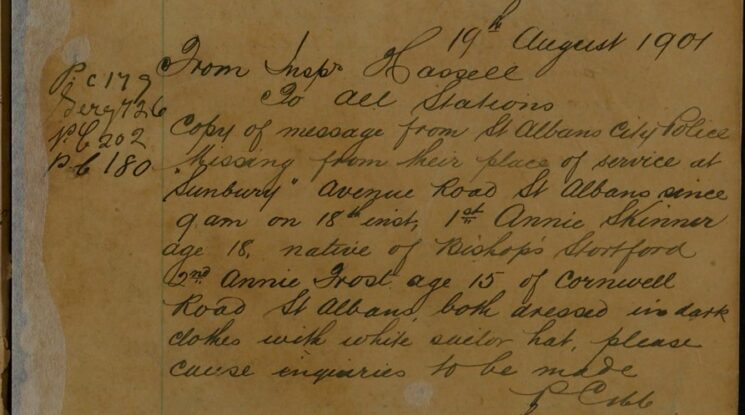 19th August 1901
From Inspr Hassell
To All Stations
P.C 179
Serg 726
P.C 202
P C 180
Copy of message from St Albans City Police
Missing from their place of service at
"Sunbury" Avenue Road St Albans since
9 am on 18th inst, 1st Annie Skinner
age 18, native of Bishop's Stortford
2nd Annie Frost age 15 of Cornwell
Road St Albans, both dressed in dark
clothes with white sailor hat, please
cause enquiries to be made